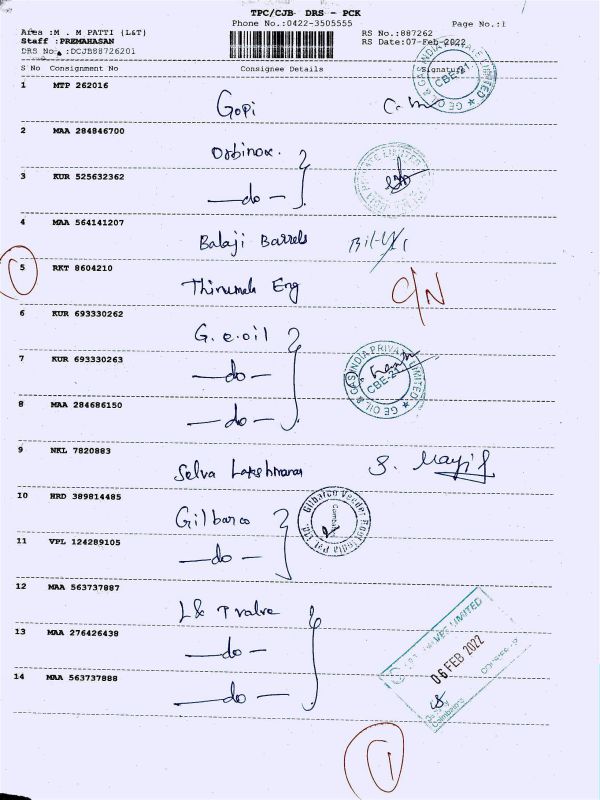 TPC/CJB DRS - PCK
Phone No.:0422-3505555
Page No.:1
Area :M . M PATTI (L&T)
RS No.:887262
Staff :PREMAHASAN
RS Date:07-Feb-2022
DRS No. :DCJB88726201
S No Consignment No Consignee Details Signature
1 MTP 262016
Gopi
2 MAA 284846700
Orbinox.
3 KUR 525632362
—do—
4 MAA 564141207
Balaji Barrels
5 RKT 8604210
Thirumala Eng C/N
6 KUR 693330262
G.e.oil
7 KUR 693330263
—do—
GE OIL & GAS INDIA PRIVATE LIMITED
CBE-21
8 MAA 284686150
—do—
9 NKL 7820883
Selva Lakshmanan
10 HRD 389814485
Gilbarco
Gilbarco Veeder Root India Pvt Ltd
11 VPL 124289105
—do—
12 MAA 563737887
L& T valve
13 MAA 276426438
—do—
06 FEB 2022
14 MAA 563737888
—do—
1